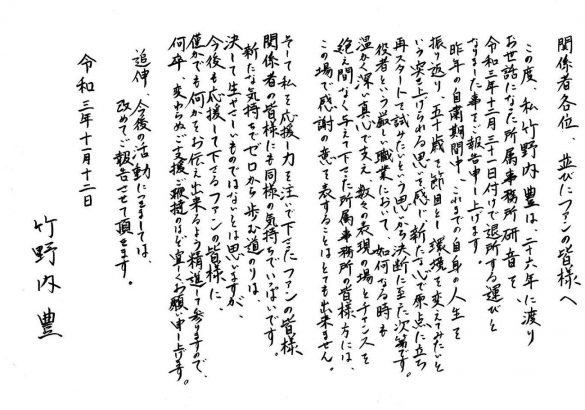 関係者各位、並びにファンの皆様へ
この度、私 竹野内豊は、二十六年に渡り
お世話になった所属事務所研音を、
令和三年十二月三十一日付けで退所する運びと
なりました事をご報告申し上げます。
昨年の自粛期間中、これまでの自身の人生を
振り返り、五十歳を節目とし環境を変えてみたいと
いう突き上げられる思いを感じ新たな心で原点に立ち
再スタートして試みたいという思いから決断に至った次第です。
役者という厳しい職業において、如何なる時も
温かく深い真心で支え数々の表現の場とチャンスを
絶え間なく与えて下さった所属事務所の皆様方には、
この場で感謝の意を表することはとても出来ません。
そして私を応援し力を注いで下さったファンの皆様、
関係者の皆様にも同様の気持ちでいっぱいです。
新たな気持ちでゼロから歩む道のりは、
決して生やさしいものではないとは思いますが、
今後も応援して下さるファンの皆様に、
僅かでも何かをお伝え出来るよう精進して参りますので、
何卒、変わらぬご支援ご鞭撻のほど宜しくお願い申し上げます。
追伸 今後の活動につきましては、
改めてご報告させて頂きます。
令和三年十二月十二日
竹野内 豊